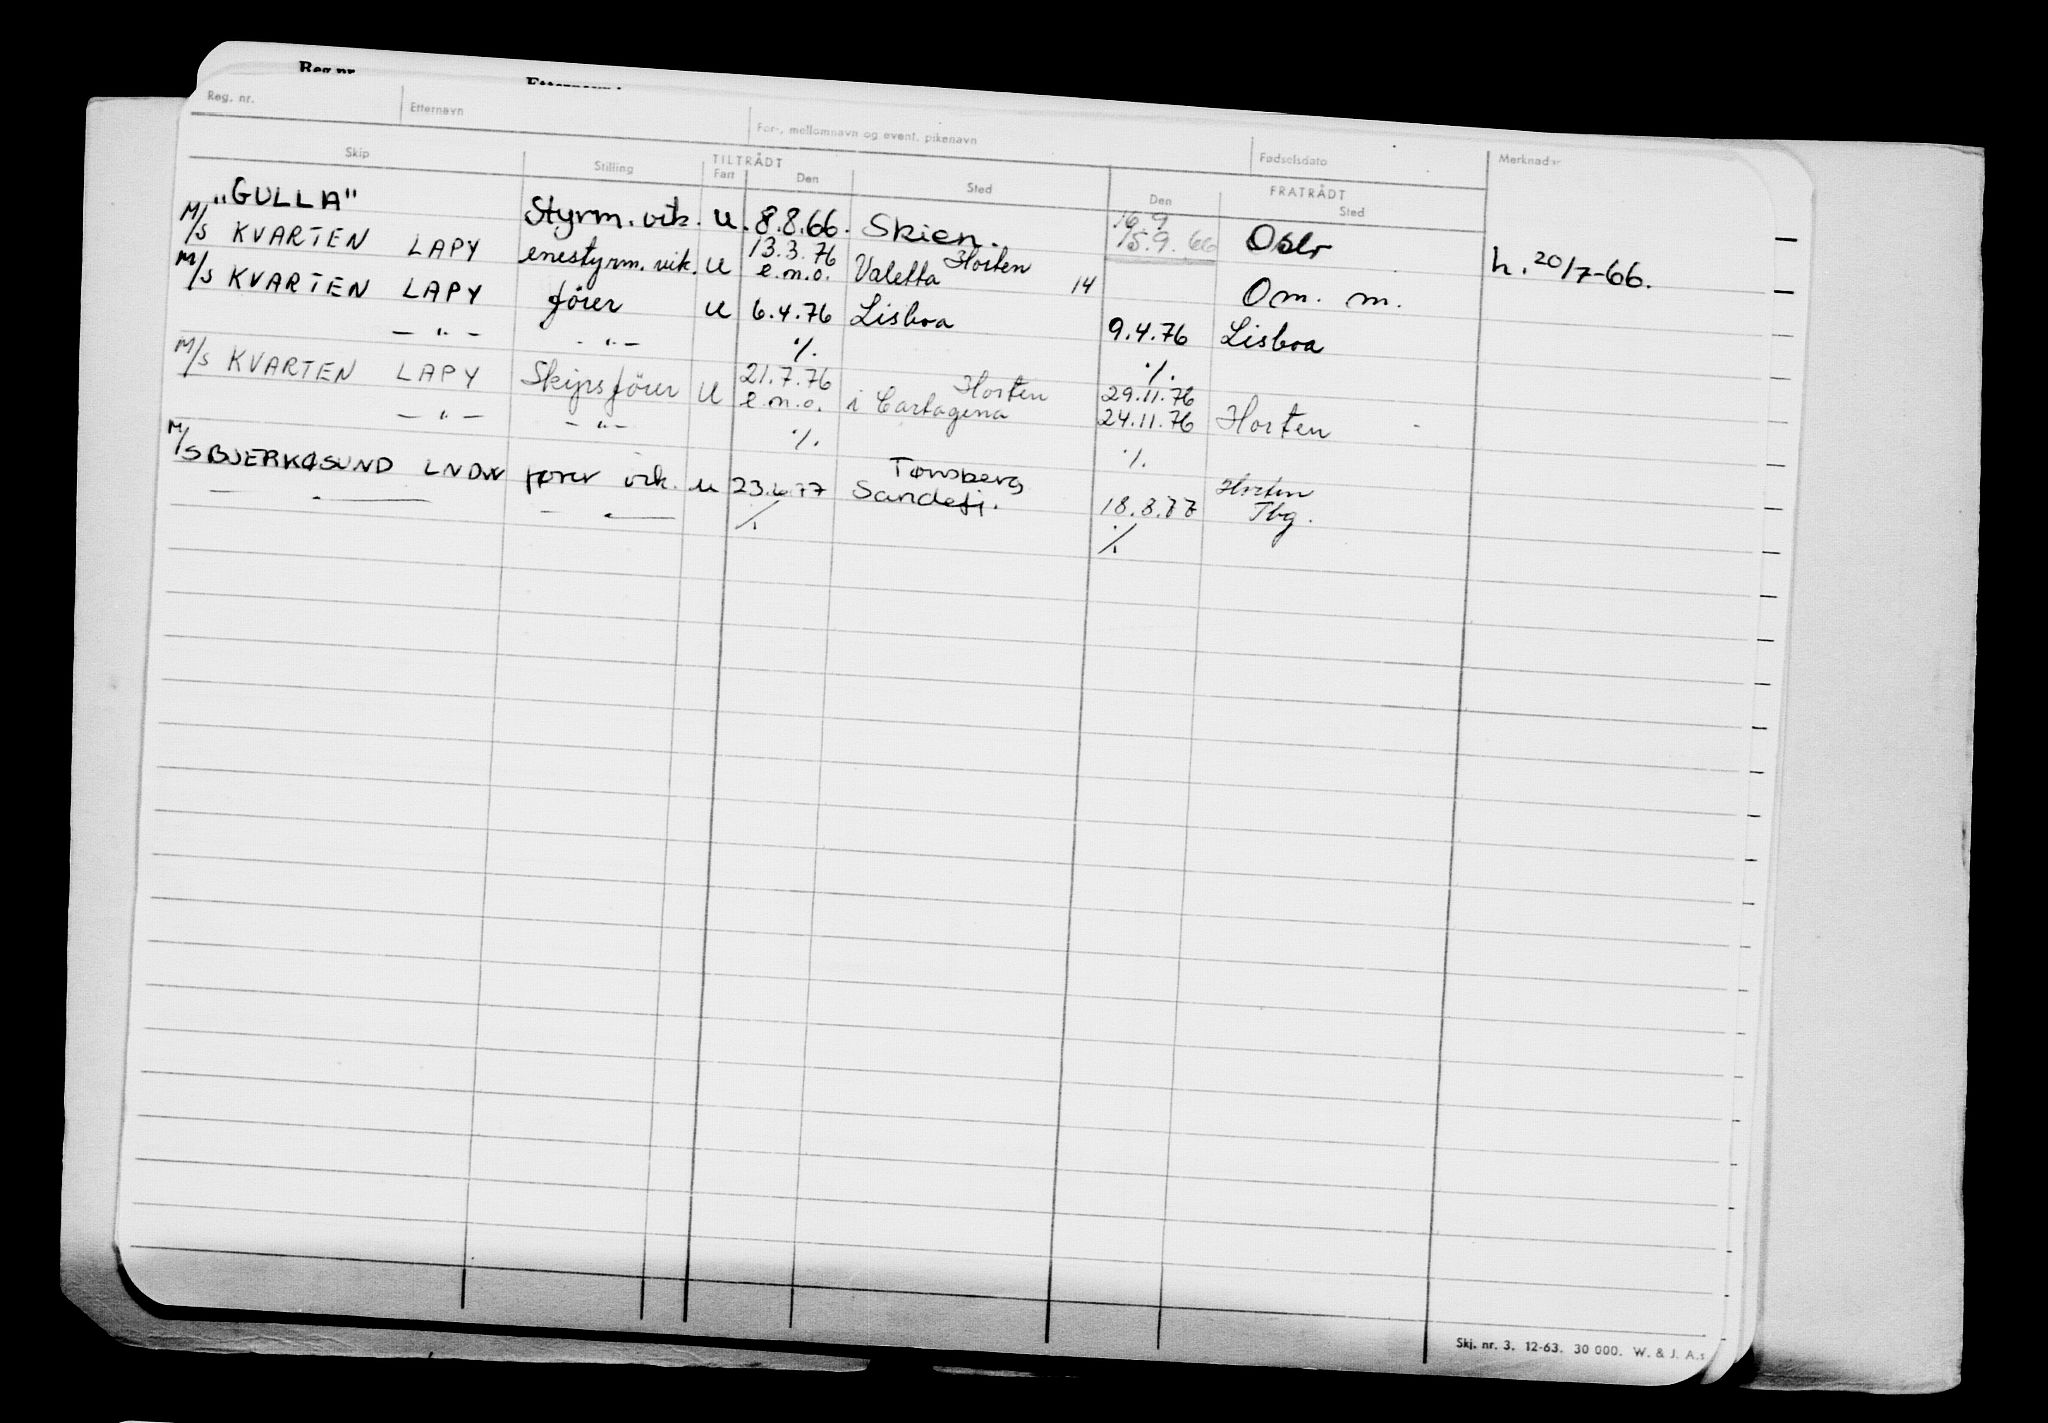 Reg. nr. Etternavn For-, mellomnavn og event. pikenavn Fødselsdato Merknader
Skip Stilling TILTRÅDT FRATRÅDT
Fart Den Sted Den Sted
"GULLA" Styrm. vik. U. 8.8.66. Skien. 16.9 15.9.66 Oslo h. 20/7-66.
M/S KVARTEN LAPY enestyrm. vik. U 13.3.76 e.m.o. Horten Valetta 14 Om. m.
M/S KVARTEN LAPY förer U 6.4.76 Lisboa 9.4.76 Lisboa
— " — — " — ./. ./.
M/S KVARTEN LAPY Skipsförer U 21.7.76 e.m.o. Horten i Cartagena 29.11.76 24.11.76 Horten
— " — — " — ./. ./.
M/S BJERKØSUND LNDW fører vik. u 23.6.77 Tønsberg Sandefj. 18.8.77 Horten Tbg.
./. ./.
Skj. nr. 3. 12-63. 30 000. W. & J. A.s